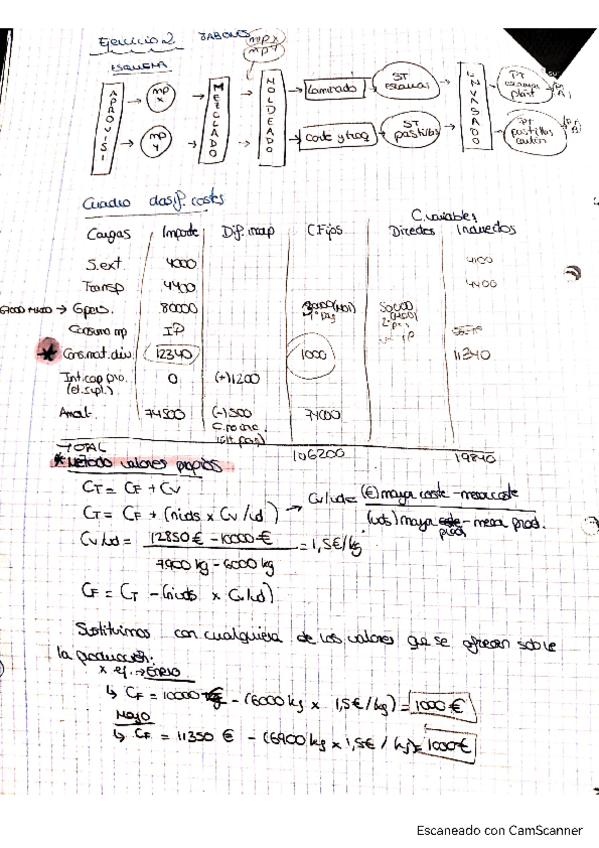 Ejercicio 2 JABONES
mpx
mpy
ESQUEMA
APROVISI
mp x
mp y
MEZCLADO
MOLDEADO
Laminado
ST escamas
corte y troq
ST pastillas
ENVASADO
PT escamas plast
PT pastillas cartón
Cuadro clasif. costes
C. variables
Cargas Importe Dif. incorp CFijos Directos Indirectos
S.ext 4000 4100
Transp 4400 4400
G pers. 80000 50000
Consumo mp IP
Cons.mat.div. 12340 1000 11340
Int.cap pro. 0 (+)1200
(el. supl.)
Amort. 74500 (-)500 74000
TOTAL 106200 19840
* Método valores propios
CT = CF + CV
CT = CF + (nºuds x Cv/ud) → Cv/ud = (€) mayor coste - menor coste
(uds) mayor prod - menor prod.
Cv/ud = 12850 € - 10000 € = 1,5 €/kg
7900 kg - 6000 kg
CF = CT - (nºuds x Cv/ud)
Sustituimos con cualquiera de los valores que se ofrecen sobre
la producción.
x ej. → Enero
↳ CF = 10000 - (6000 kg x 1,5 €/kg) = 1000 €
Mayo
↳ CF = 11350 € - (6900 kg x 1,5 € / kg) = 1000 €
Escaneado con CamScanner